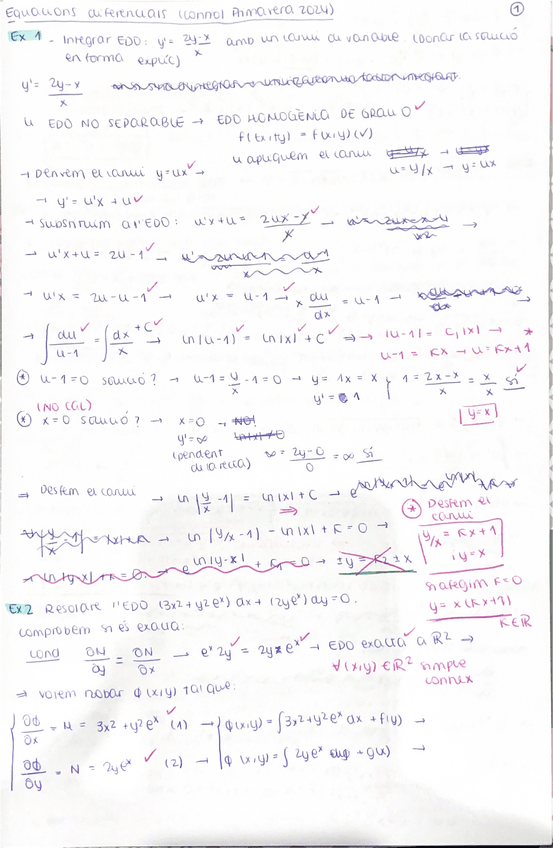 Equacions diferencials (control Primavera 2024) ①
Ex 1 - Integrar EDO: y' = 2y-x / x amb un canvi de variable (donar la solució
en forma explíc)
y' = 2y-x / x
↳ EDO NO SEPARABLE → EDO HOMOGÈNIA DE GRAU 0 ✓
f(tx,ty) = f(x,y) (✓)
↳ apliquem el canvi
u = y/x → y = ux
→ Derivem el canvi y = ux ✓ →
→ y' = u'x + u ✓
→ Substituïm a l'EDO: u'x+u = 2ux - x / x ✓ →
→ u'x+u = 2u-1 ✓ →
→ u'x = 2u-u-1 ✓ → u'x = u-1 ✓ → x du/dx = u-1 →
→ ∫ du/u-1 ✓ = ∫ dx/x + C ✓ → ln|u-1| ✓ = ln|x| ✓ + C → → |u-1| = C₁|x| → *
u-1 = Kx → u = Kx+1
* u-1=0 solució? → u-1 = y/x - 1 = 0 → y = 1x = x ; 1 = 2x-x / x = x/x Sí ✓
y' = 1
y=x
(NO CAL)
* x=0 solució? → x=0 → NO!
y' = ∞
(pendent de la recta) ∞ = 2y-0 / 0 = ∞ Sí
⇒ Desfem el canvi → ln |y/x - 1| = ln|x| + C →
⇒
→ ln |y/x - 1| - ln|x| + K = 0 →
* Desfem el
canvi
y/x = Kx + 1
i y = x
si afegim K=0
y = x(Kx+1)
K∈ℝ
Ex.2 Resoldre l'EDO (3x²+y²eˣ) dx + (2yeˣ) dy = 0.
comprobem si és exacta:
cond ∂M/∂y = ∂N/∂x → eˣ2y ✓ = 2yeˣ ✓ → EDO exacta ✓ a ℝ² ⇒
∀(x,y) ∈ ℝ² simple
connex
⇒ volem trobar ϕ(x,y) tal que:
∂ϕ/∂x = M = 3x² + y²eˣ ✓ (1) → ϕ(x,y) = ∫3x²+y²eˣ dx + f(y) →
∂ϕ/∂y = N = 2yeˣ ✓ (2) → ϕ(x,y) = ∫ 2yeˣ dy + g(x) →